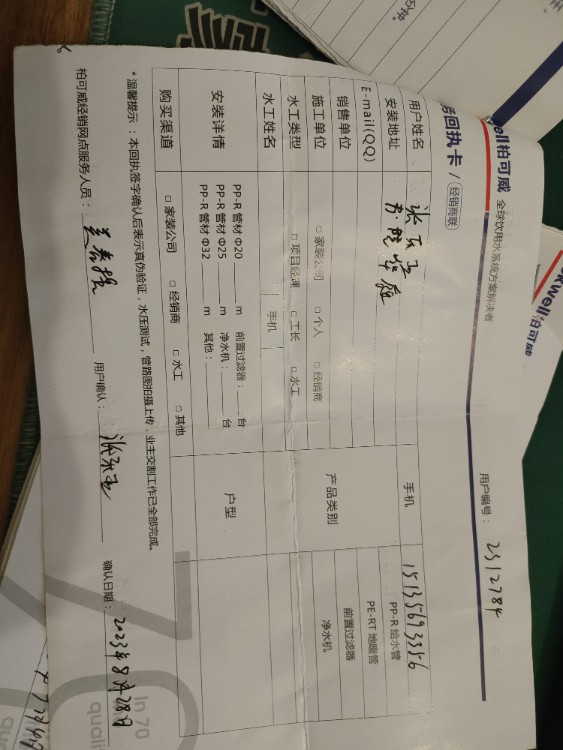 well 柏可威 全球饮用水系统方案解决者
用户编号： 2312784
务回执卡 / 经销商联
用户姓名 手机 15135693356
安装地址
E-mail(QQ)
销售单位
施工单位 □ 家装公司 □ 个人 □ 经销商
水工类型 □ 项目经理 □ 工长 □ 水工
水工姓名 手机
产品类别
PP-R 给水管
PE-RT 地暖管
前置过滤器
净水机
安装详情
PP-R 管材 Φ20 m 前置过滤器： 台
PP-R 管材 Φ25 m 净水机： 台
PP-R 管材 Φ32 m 其他：
户型
购买渠道 □ 家装公司 □ 经销商 □ 水工 □ 其他
*温馨提示：本回执签字确认后表示真伪验证，水压测试，管路图拍摄上传，业主交割工作已全部完成。
柏可威经销网点服务人员： 用户确认： 确认日期： 2023年8月28日
In 70
quali
well 柏可威